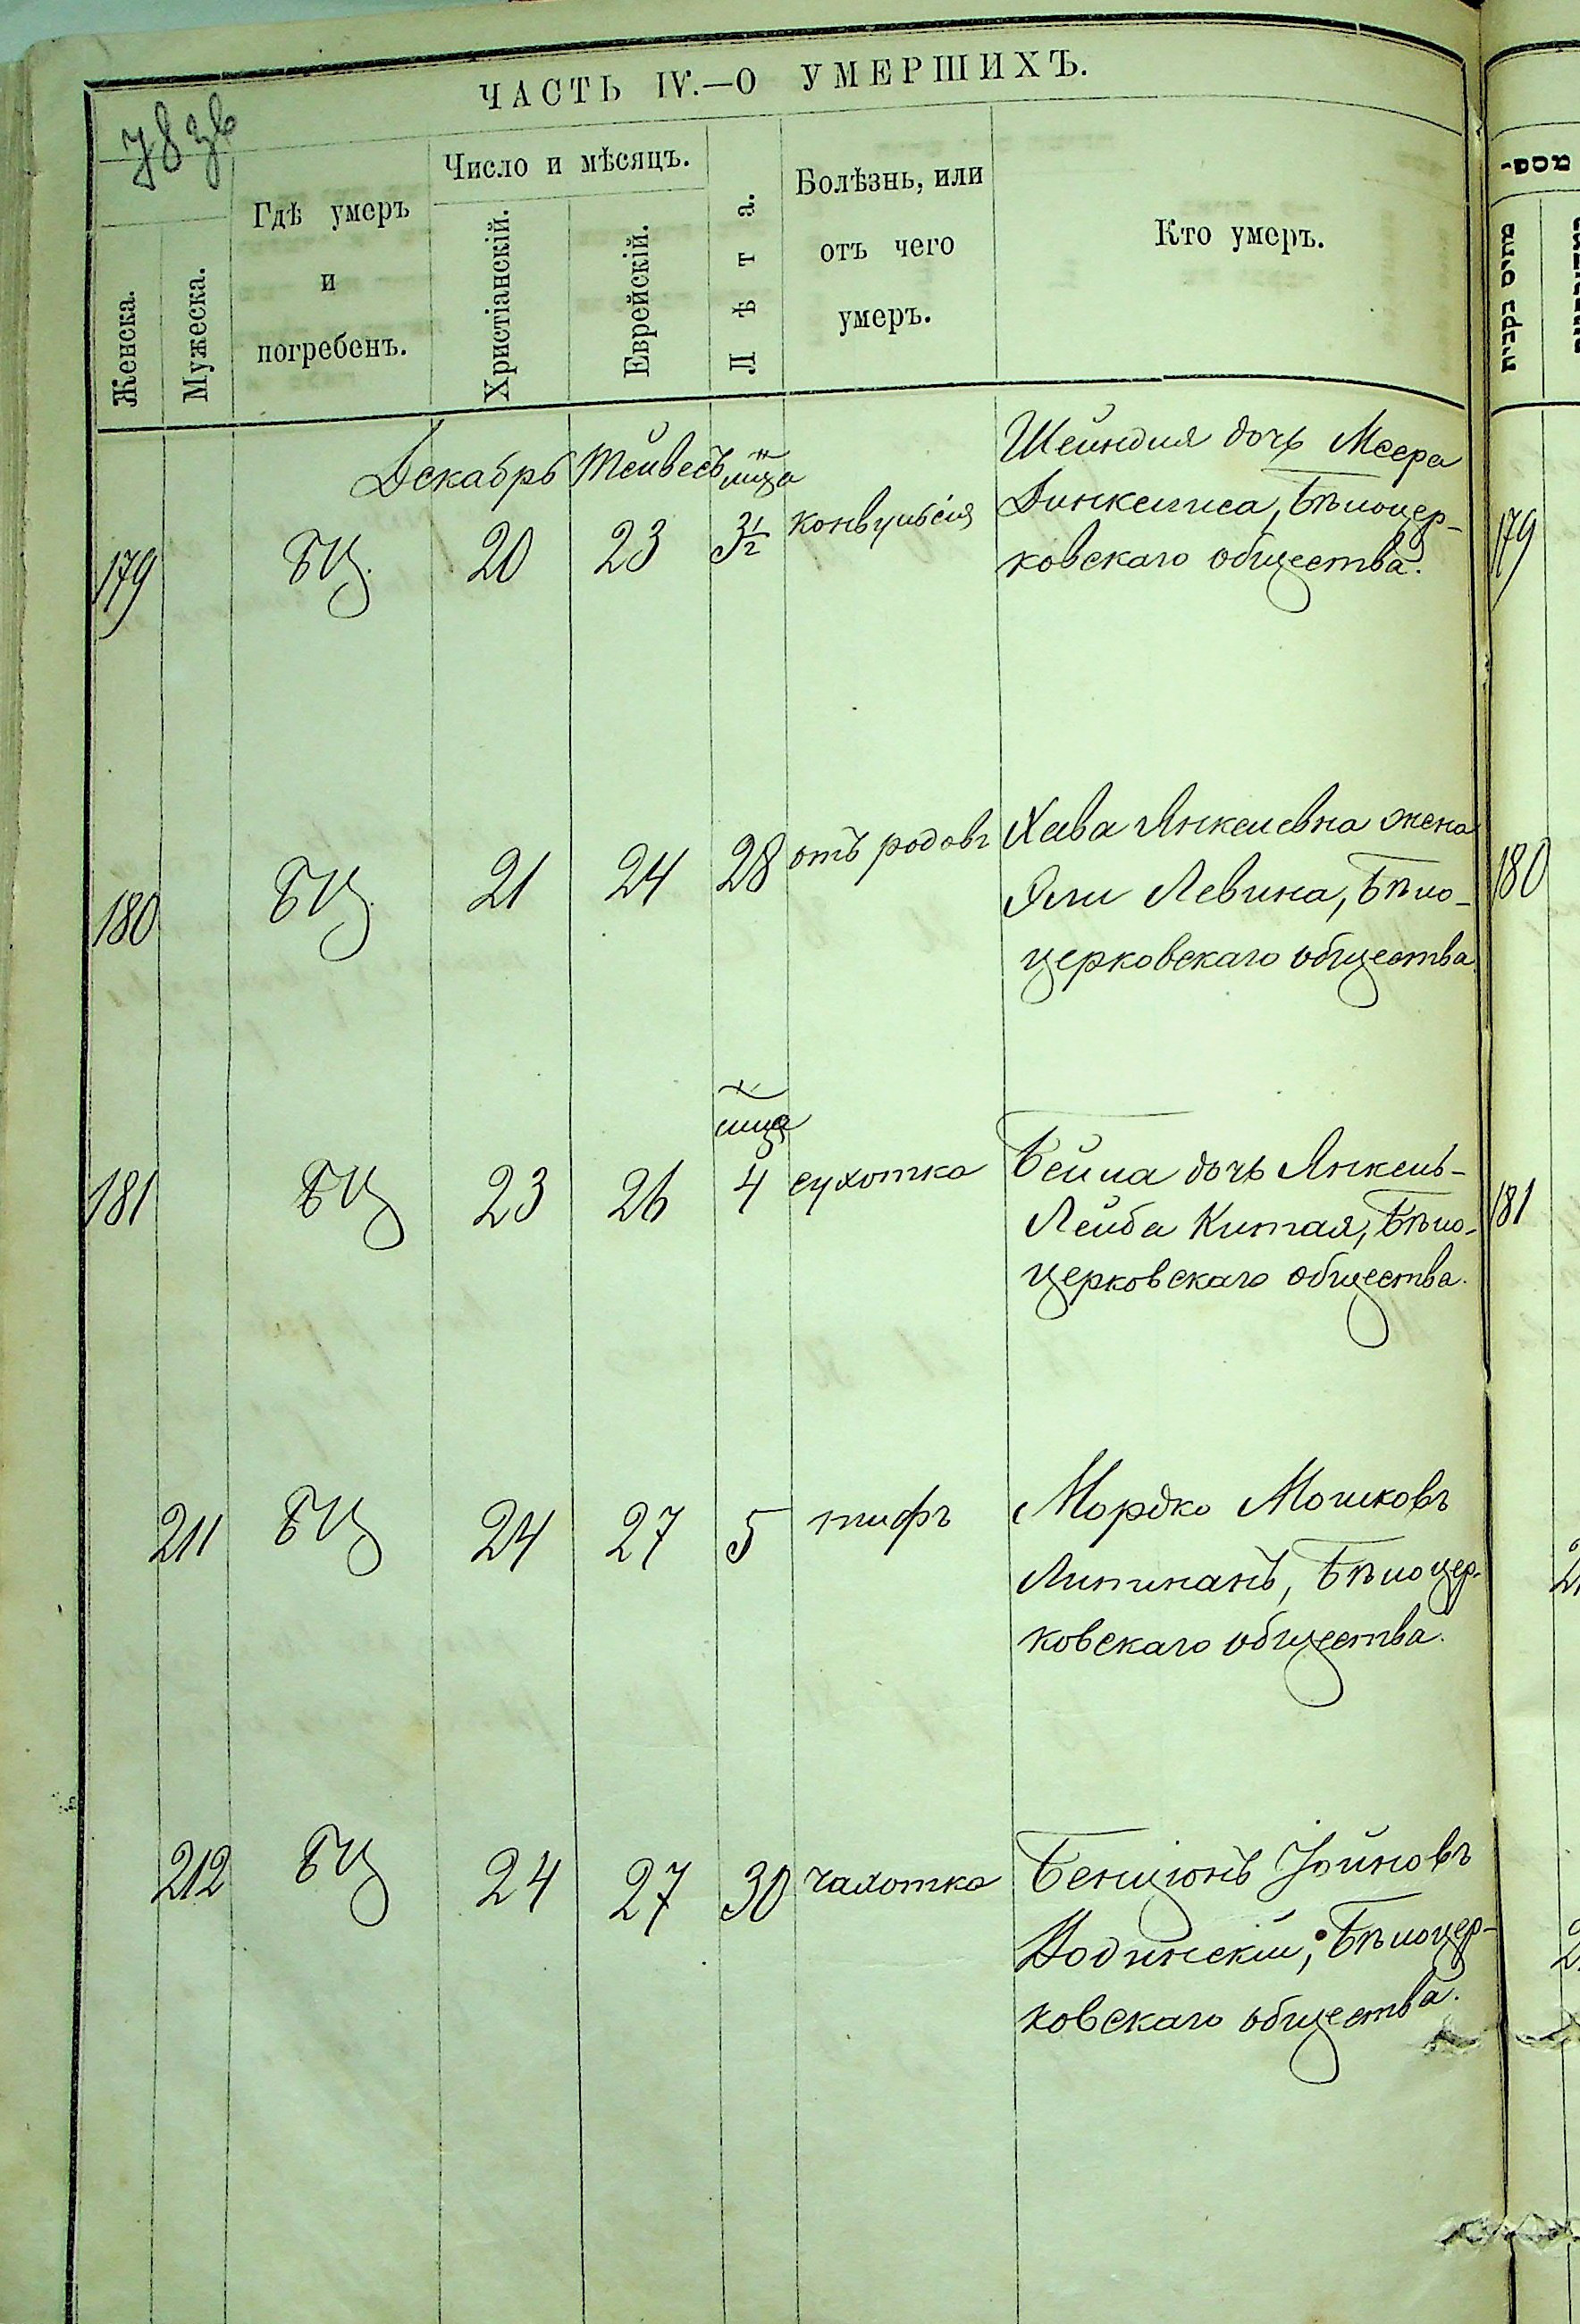 ЧАСТЬ IV.—О УМЕРШИХЪ.
Женска.
Мужеска.
Гдѣ умеръ
и
погребенъ.
Число и мѣсяцъ.
Христіанскій.
Еврейскій.
Лѣта.
Болѣзнь, или
отъ чего
умеръ.
Кто умеръ.
Декабрь Тейвесъ мца
179 БЦ. 20 23 3½ конвульсія
Шейндля дочь Меера
Динкелиса, Бѣлоцер-
ковскаго общества.
179
180 БЦ. 21 24 28 отъ родовъ
Хава Янкелевна жена
Эли Левина, Бѣло-
церковскаго общества
180
мца
181 БЦ 23 26 4 сухотка
Бейла дочь Янкель-
Лейба Китая, Бѣло-
церковскаго общества.
181
211 БЦ 24 27 5 тифъ
Мордко Мошковъ
Липиканъ, Бѣлоцер-
ковскаго общества.
212 БЦ 24 27 30 чахотка
Бенціонъ Іойновъ
Водинскій, Бѣлоцер-
ковскаго общества.